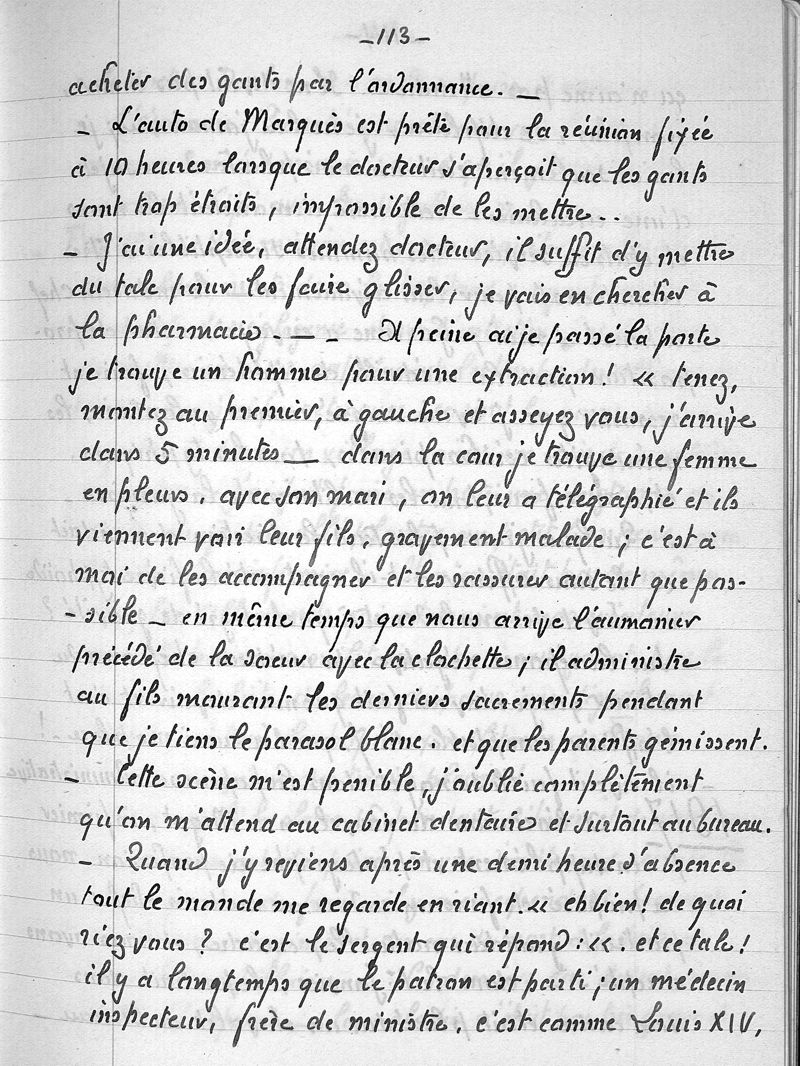 _113_
acheter des gants par l'ordonnance. _
_ L'auto de Marquès est prête pour la réunion fixée
à 10 heures lorsque le docteur s'aperçoit que les gants
sont trop étroits, impossible de les mettre..
_ J'ai une idée, attendez docteur, il suffit d'y mettre
du talc pour les faire glisser, je vais en chercher à
la pharmacie _ _ _ A peine ai je passé la porte
je trouve un homme pour une extraction! « tenez,
montez au premier, à gauche et asseyez vous, j'arrive
dans 5 minutes _ dans la cour je trouve une femme
en pleurs, avec son mari, on leur a télégraphié et ils
viennent voir leur fils, gravement malade; c'est à
moi de les accompagner et les rassurer autant que pos-
-sible _ en même temps que nous arrive l'aumonier
précédé de la soeur avec la clochette; il administre
au fils mourant les derniers sacrements pendant
que je tiens le parasol blanc. et que les parents gémissent.
_ Cette scène m'est penible, j'oublie complètement
qu'on m'attend au cabinet dentaire et surtout au bureau.
_ Quand j'y reviens après une demi heure d'absence
tout le monde me regarde en riant. « eh bien! de quoi
riez vous? c'est le sergent qui répond: «. et ce talc!
il y a longtemps que le patron est parti; un médecin
inspecteur, frère de ministre, c'est comme Louis XIV,